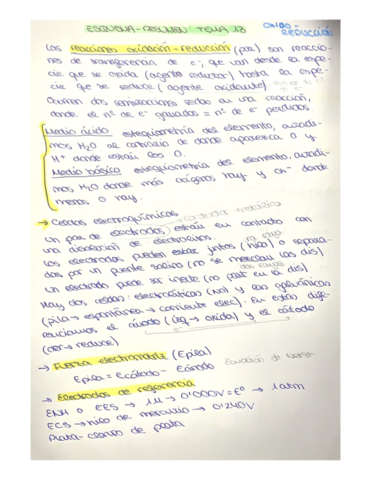 ESQUEMA-RESUMEN TEMA 13
OXIDO-REDUCCIÓN
Las reacciones oxidación-reducción (par) son reaccio-
nes de transferencia de e⁻; que van desde la espe-
cie que se oxida (agente reductor) hasta la espe-
cie que se reduce (agente oxidante)
Ocurren dos semireacciones redox en una reacción,
donde el nº de e⁻ ganados = nº de e⁻ perdidos.
Medio ácido estequiometría del elemento, añadi-
mos H₂O al contrario de donde aparezca O y
H⁺ donde están los O.
Medio básico estequiometría del elemento, añadi-
mos H₂O donde más oxígenos hay y OH⁻ donde
menos o no hay.
→ Celdas electroquímicas conductor metálico
Un par de electrodos, están en contacto con
una disolución de electrolitos.
Los electrodos pueden estar juntos o separa-
dos por un puente salino (no se mezclan las dis)
Un electrodo puede ser inerte (no part en la dis)
Hay dos celdas: electrolíticas y las galvánicas
(pila → espontánea → corriente elec). En estas dife-
renciamos el ánodo (izq → oxida) y el cátodo
(der → reduce)
→ Fuerza electromotriz (Epila)
Epila = Ecátodo - Eánodo
Ecuación de Nernst
→ Electrodos de referencia
ENH o EES → 1M → 0'000V = E⁰ → 1 atm
ECS → de mercurio → 0'240V
Plata-cloruro de plata